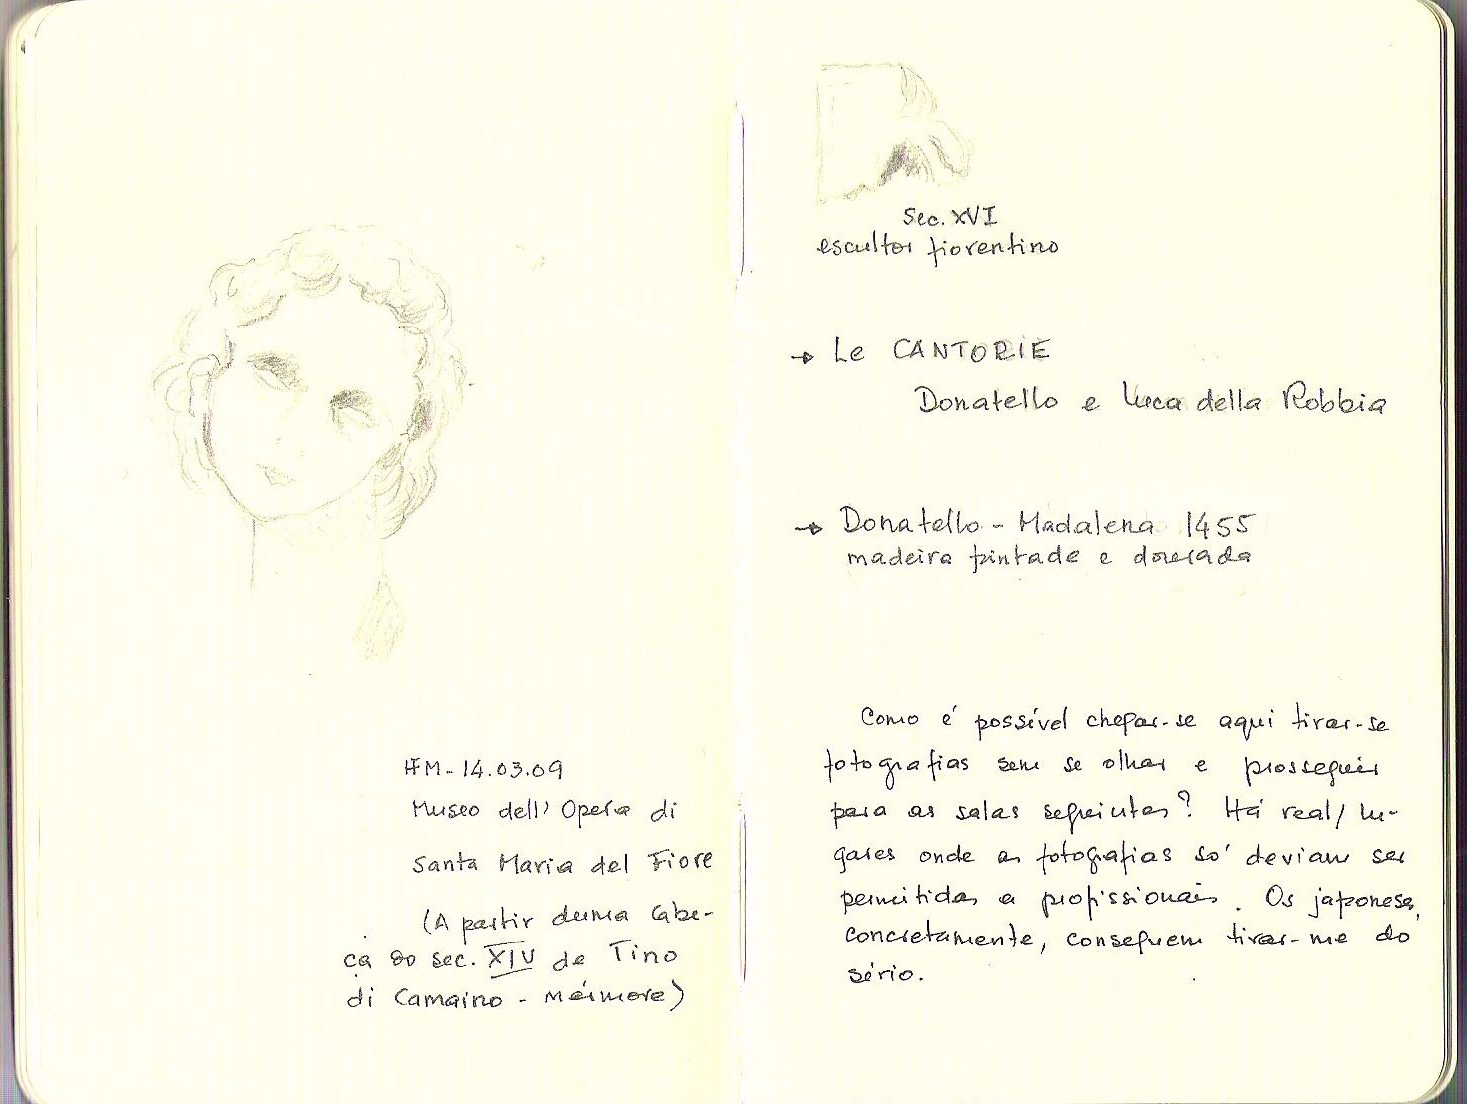 HM - 14.03.09
Museo dell' Opera di
Santa Maria del Fiore
(A partir duma cabe-
ça do sec. XIV de Tino
di Camaino - mármore)
Sec. XVI
escultor fiorentino
→ Le CANTORIE
Donatello e Luca della Robbia
→ Donatello - Madalena 1455
madeira pintada e dourada
Como é possível chegar-se aqui tirar-se
fotografias sem se olhar e prosseguir
para as salas seguintes? Há real/ lu-
gares onde as fotografias só deviam ser
permitidas a profissionais. Os japoneses,
concretamente, conseguem tirar-me do
sério.